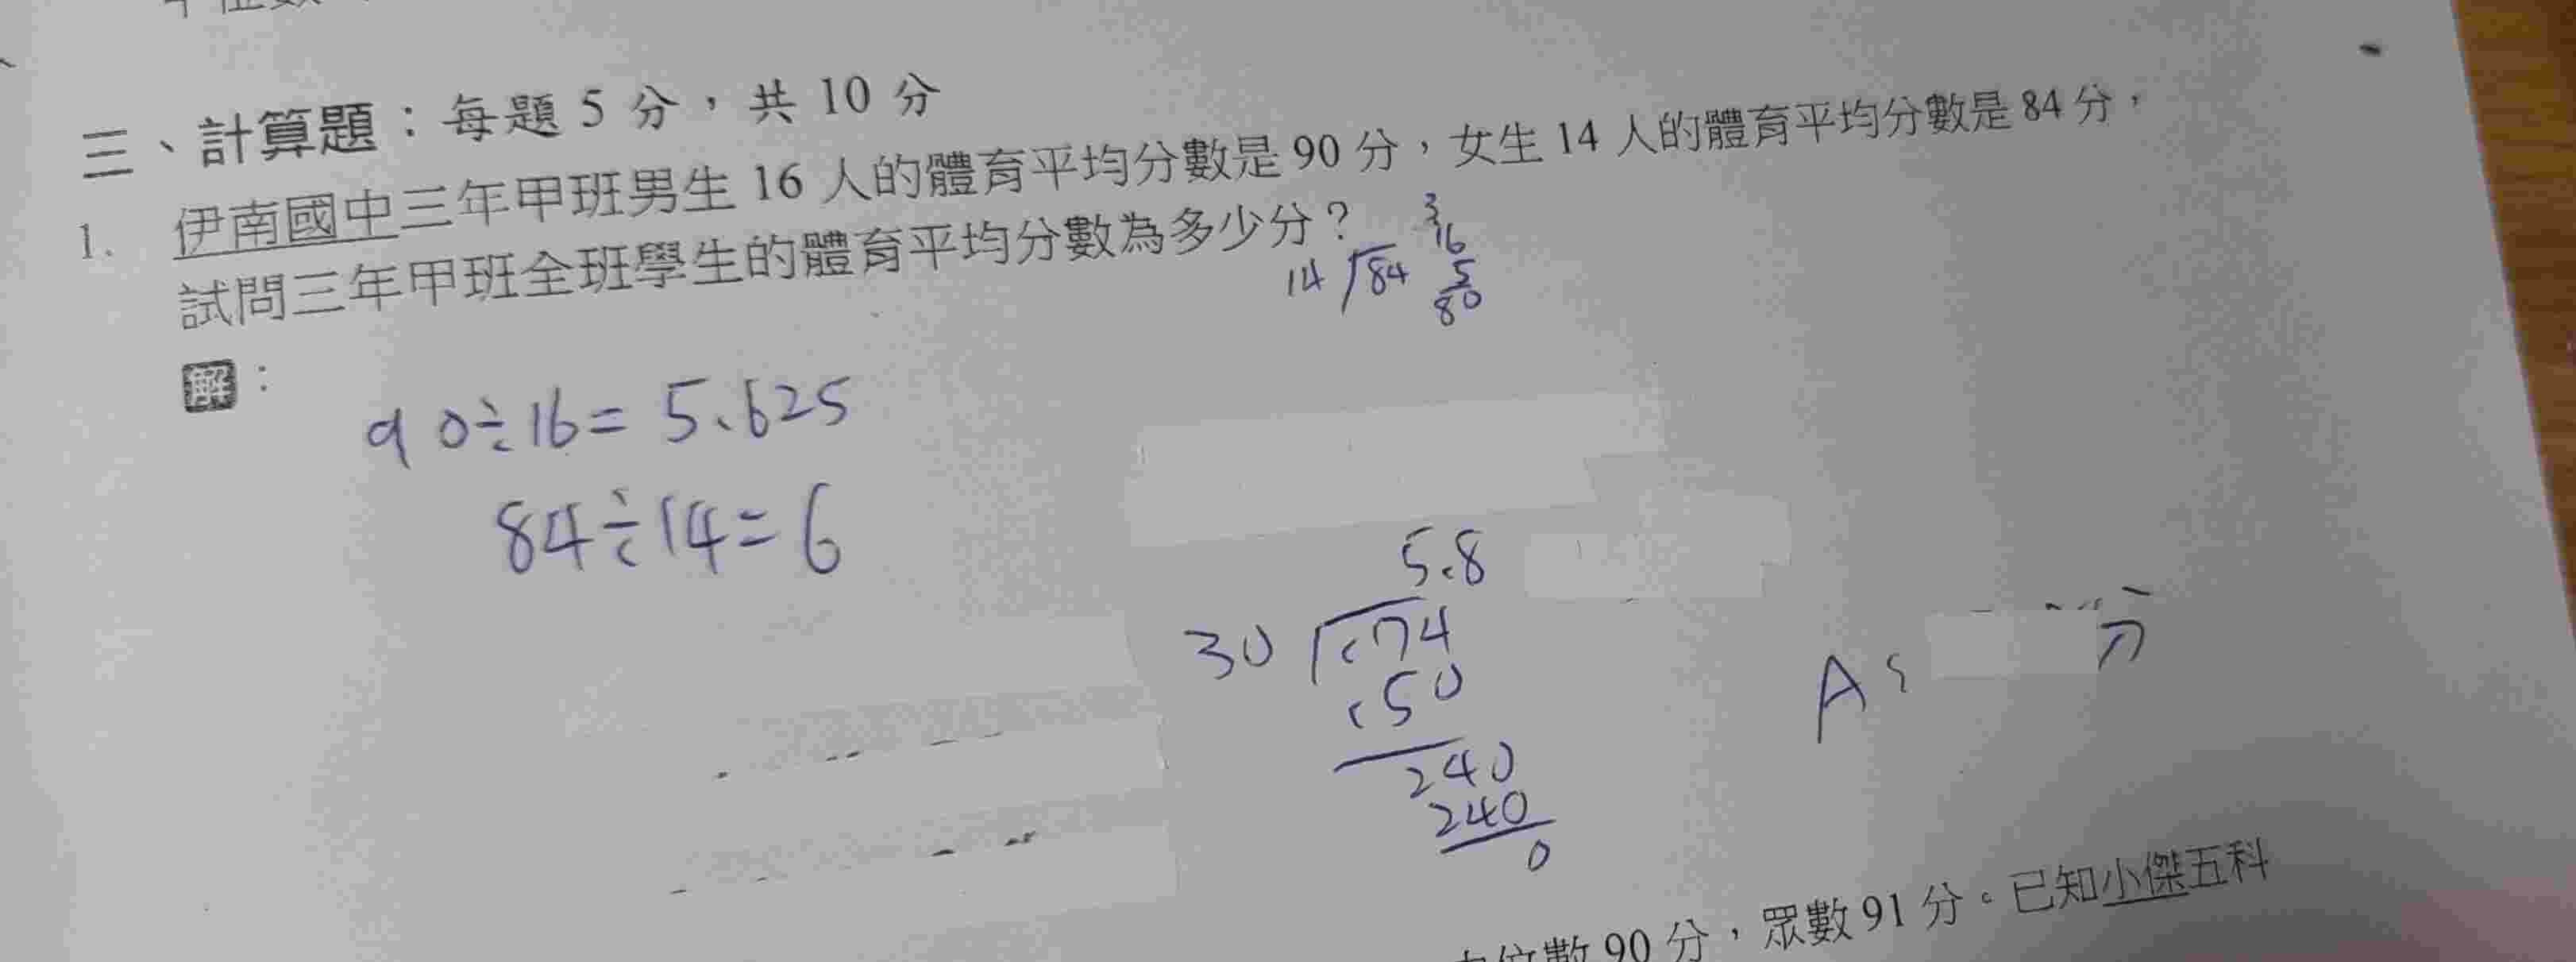 三、計算題：每題 5 分，共 10 分
1. 伊南國中三年甲班男生 16 人的體育平均分數是 90 分，女生 14 人的體育平均分數是 84 分，
試問三年甲班全班學生的體育平均分數為多少分？
3
16
14 84 5
80
解：
90÷16=5.625
84÷14=6
5.8
30 174
150
240
240
0
A: 分
位數 90 分，眾數 91 分。已知小傑五科